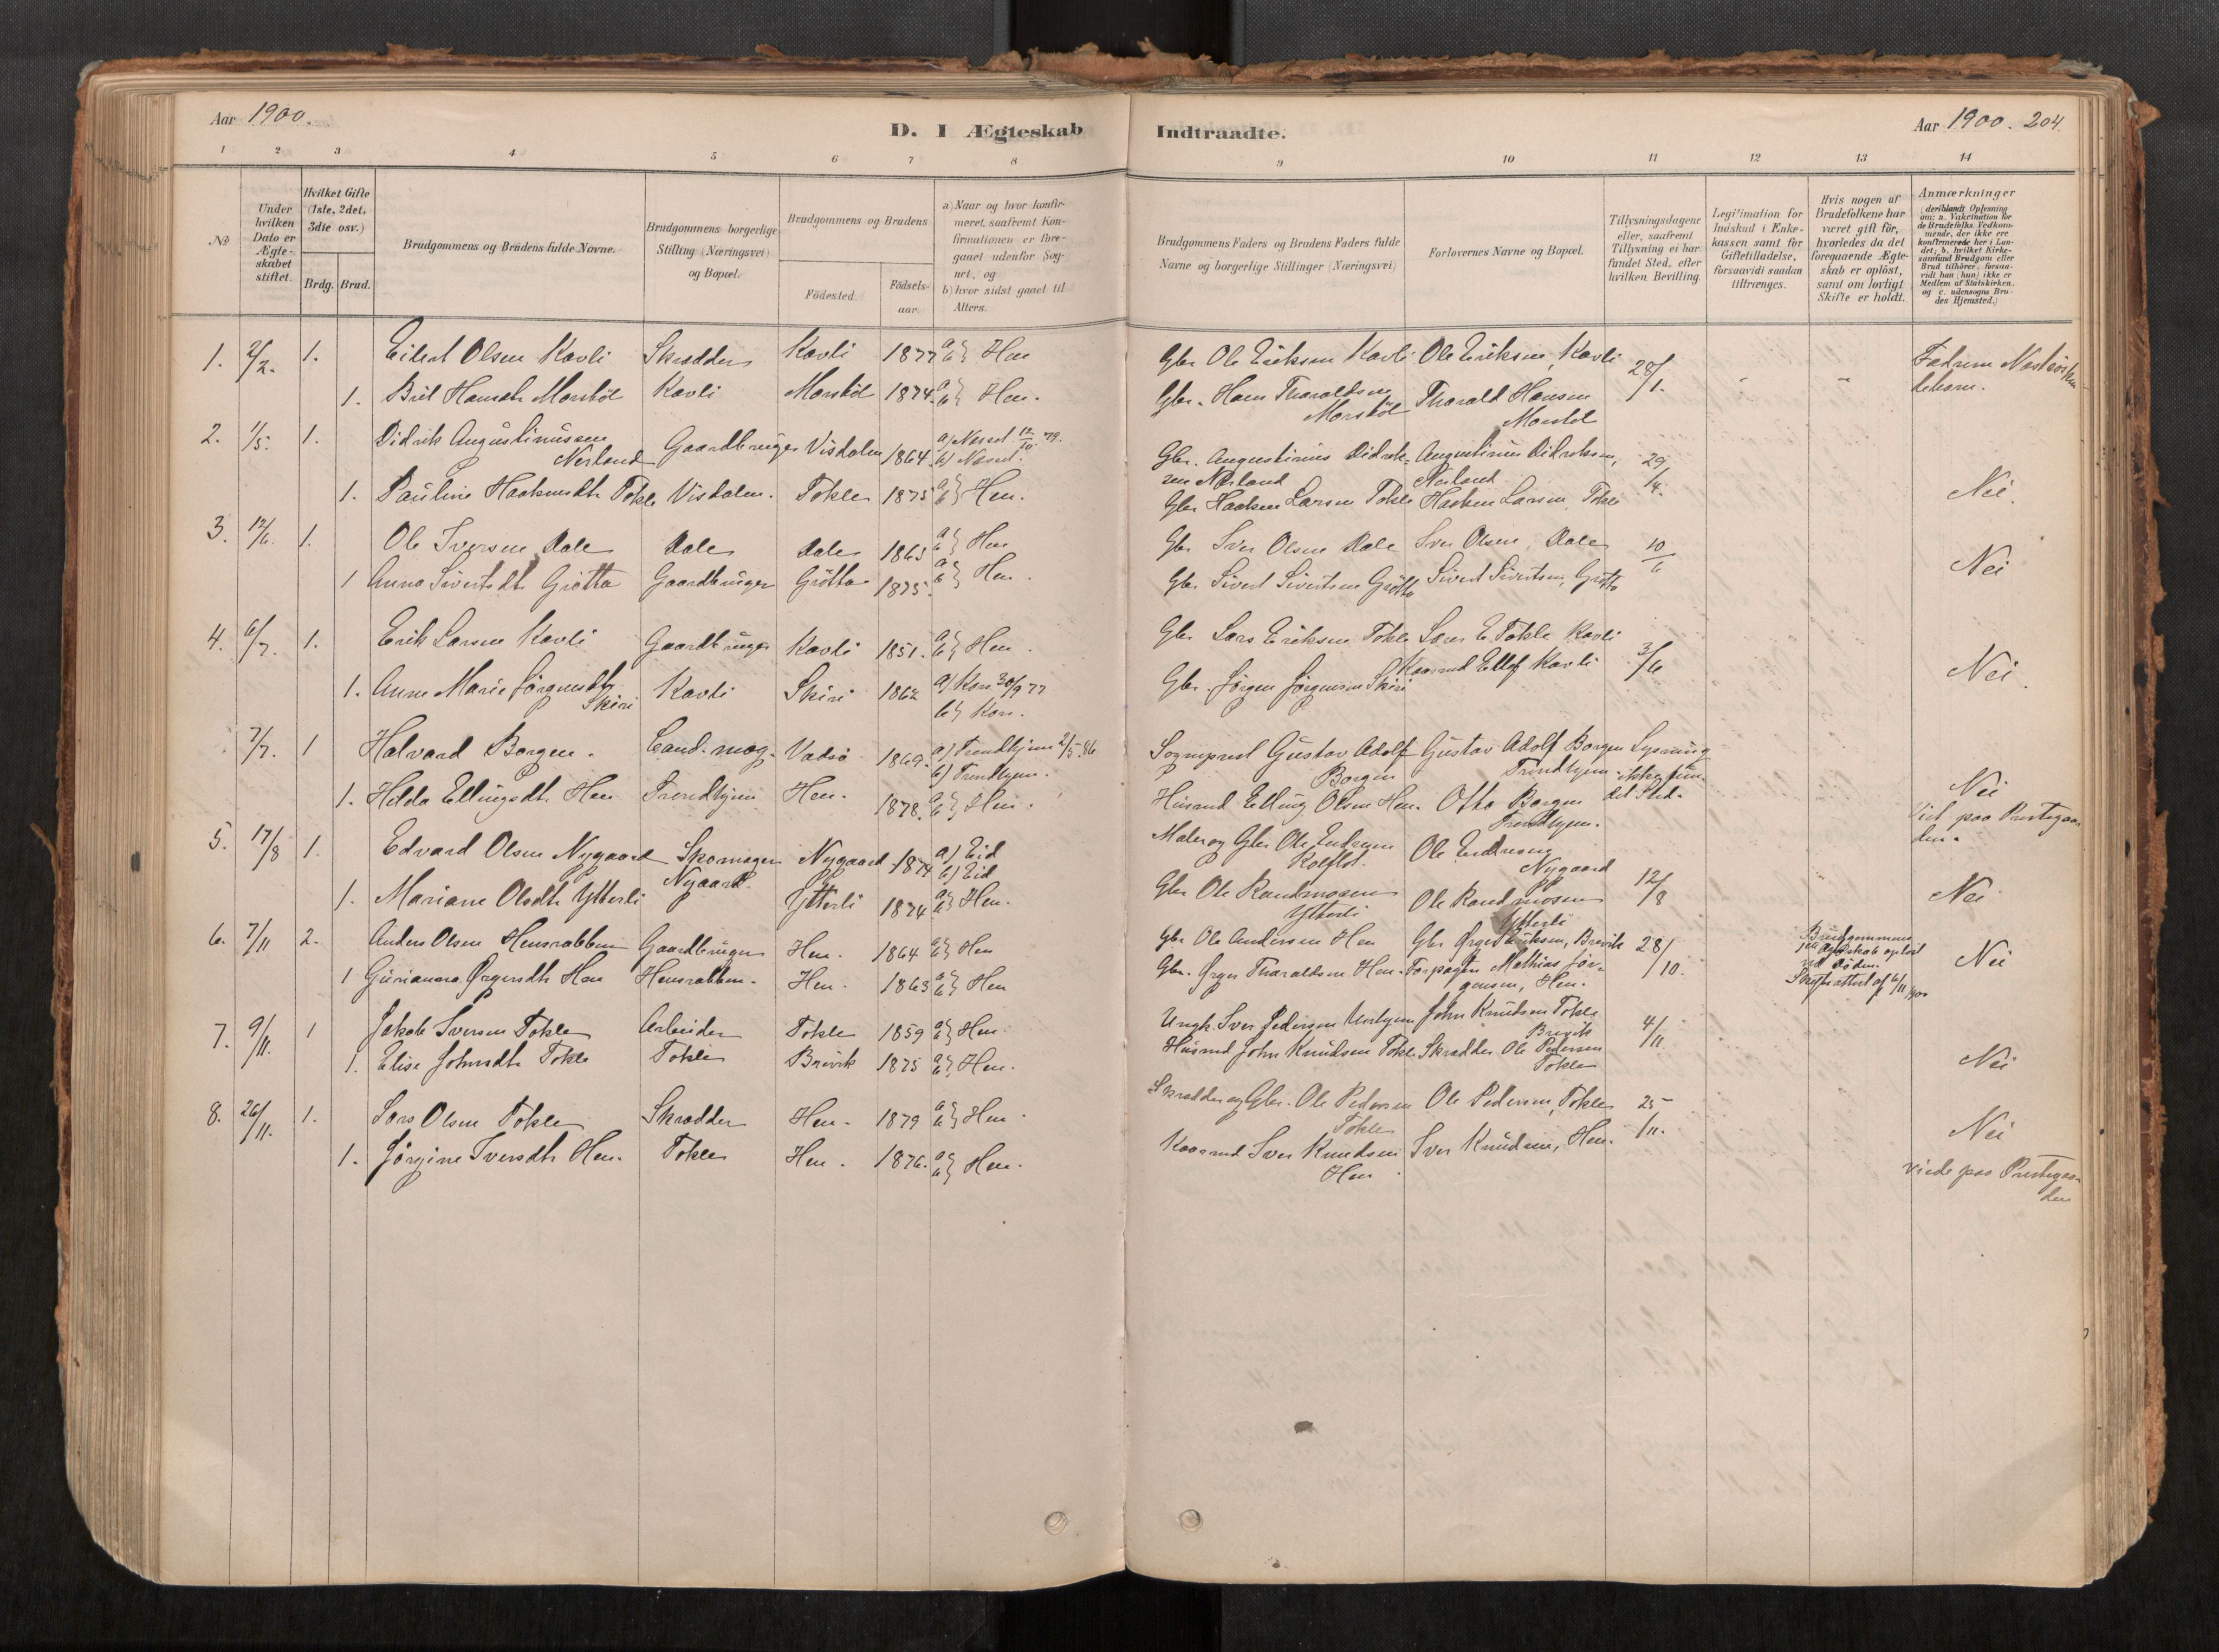 Aar 1900.
D. I Ægteskab Indtraadte.
Aar 1900. 204.
1 2 3 4 5 6 7 8 9 10 11 12 13 14
No
Under hvilken Dato er Ægteskabet stiftet.
Hvilket Gifte (1ste, 2det, 3die osv.)
Brdg. Brud.
Brudgommens og Brudens fulde Navne.
Brudgommens borgerlige Stilling (Næringsvei) og Bopæl.
Brudgommens og Brudens
Födested.
Födsels-aar.
a) Naar og hvor konfirmeret, saafremt Konfirmationen er foregaaet udenfor Sognet, og
b) hvor sidst gaaet til Alters.
Brudgommens Faders og Brudens Faders fulde Navne og borgerlige Stillinger (Næringsvei)
Forlovernes Navne og Bopæl.
Tillysningsdagene eller, saafremt Tillysning ei har fundet Sted, efter hvilken Bevilling.
Legitimation for Indskud i Enkekassen samt for Giftetilladelse, forsaavidt saadan tiltrænges.
Hvis nogen af Brudefolkene har været gift för, hvorledes da det foregaaende Ægteskab er oplöst, samt om lovligt Skifte er holdt.
Anmærkninger
(deriblandt Oplysning om: a. Vakcination for de Brudefolks Vedkommende, der ikke ere konfirmerede her i Landet; b. hvilket Kirkesamfund Brudgom eller Brud tilhörer, forsaavidt han (hun) ikke er Medlem af Statskirken, og c. udensogns Brudes Hjemsted.)
1. 2/2. 1. Eilert Olsen Kavli Skrædder Kavli 1877 a b} Hen Gbr Ole Eriksen Kavli Ole Eriksen, Kavli 28/1.
1. Brit Hansdtr Morstöl Kavli Morstöl 1874. a b} Hen. Gbr. Hans Tharaldsen Morstöl Tharald Hansen Morstöl
2. 1/5. 1. Didrik Augustinussen Nerland Gaardbruger Visdalen 1864. a) Nesset 12/10 79. b) Nesset. Gbr. Augustinus Didriksen Nerland Augustinus Didriksen, Nerland 29/4.
1. Pauline Haakensdtr Tokle Visdalen. Tokle 1875 a b} Hen. Gbr Haaken Larsen Tokle Haaken Larsen, Tokle Nei.
3. 12/6. 1. Ole Iversen Dale Dale Dale 1863 a b} Hen Gbr Iver Olsen Dale Iver Olsen, Dale 10/6
1 Anna Sivertsdtr Grötta Gaardbruger Grötta 1875. a b} Hen. Gbr Sivert Sivertsen Grötta Sivert Sivertsen, Grötta Nei
4. 6/7. 1. Erik Larsen Kavli Gaardbruger Kavli 1851. a b} Hen. Gbr Lars Eriksen Tokle Lars E. Tokle Kavli 3/6
1. Anne Marie Jörgensdtr Skiri Kavli Skiri 1862 a) Kors 30/9 77 b} Kors. Gbr. Jörgen Jörgensen Skiri Kaarmd Ellef Kavli Nei
7/7. 1 Halvard Borgen. Cand. mag. Vadsö 1869. a) Trondhjem 2/5 86 b) Trondhjem. Sogneprest Gustav Adolf Borgen Gustav Adolf Borgen Trondhjem Lysning ikke fundet Sted.
1. Hilda Ellingsdtr Hen Trondhjem Hen. 1878. a b} Hen. Husmd Elling Olsen Hen. Otto Borgen Trondhjem. Nei
Viet paa Prestegaarden.
5. 17/8 1. Edvard Olsen Nygaard Skomager Nygaard 1874 a) Eid b) Eid Maler og Gbr Ole Endresen Ole Endresen Nygaard
1. Mariane Olsdtr Ytterli Nygaard Ytterli 1874. a b} Hen. Gbr Ole Randmosen Ytterli Ole Randmosen Ytterli 12/8 Nei
6. 7/11 2. Anders Olsen Hensrabben Gaardbruger Hen. 1864 a b} Hen Gbr Ole Andersen Hen Gbr Ørger Eriksen, Brevik 28/10.
1 Gurianna Ørgersdtr Hen Hensrabben. Hen. 1863 a b} Hen Gbr. Ørger Tharaldsen Hen. Forpagter Mathias Jörgensen, Hen. Brudgommens 1ste Ægteskab oplöst ved Döden. Skifteattest af 6/11 1900 Nei
7. 9/11. 1 Jakob Iversen Tokle Arbeider Tokle 1859 a b} Hen. Ungk. Iver Pedersen John Knudsen Tokle Brevik 4/11
1. Elise Johnsdtr Tokle Tokle Brevik 1875 a b} Hen. Husmd John Knudsen Tokle Skrædder Ole Pedersen Tokle Nei
8. 26/11. 1. Lars Olsen Tokle Skrædder Hen. 1879 a b} Hen. Skrædder og Gbr. Ole Pedersen Tokle Ole Pedersen, Tokle 25/11.
1. Jörgine Iversdtr Hen. Tokle Hen. 1876. a b} Hen. Kaarmd Iver Knudsen Hen Iver Knudsen, Hen. Nei
viede paa Prestegaarden